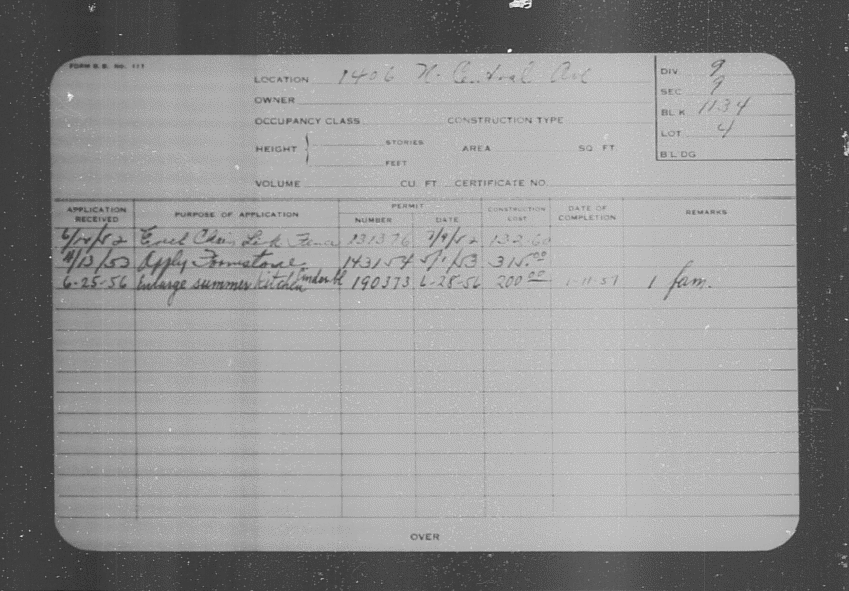 FORM B. B. No. 117
LOCATION 1406 N. Central Ave
OWNER
OCCUPANCY CLASS CONSTRUCTION TYPE
HEIGHT STORIES FEET AREA SQ. FT.
VOLUME CU. FT. CERTIFICATE NO.
DIV. 9
SEC 9
BLK 1134
LOT 4
BLDG
APPLICATION RECEIVED PURPOSE OF APPLICATION PERMIT NUMBER DATE CONSTRUCTION COST DATE OF COMPLETION REMARKS
Erect Chain Link Fence 131376 7/9/52 132.60
4/13/53 Apply Formstone 143154 5/1/53 315.00
6-25-56 Enlarge summer kitchen 190373 6-28-56 200.00 1-11-57 1 fam.
OVER